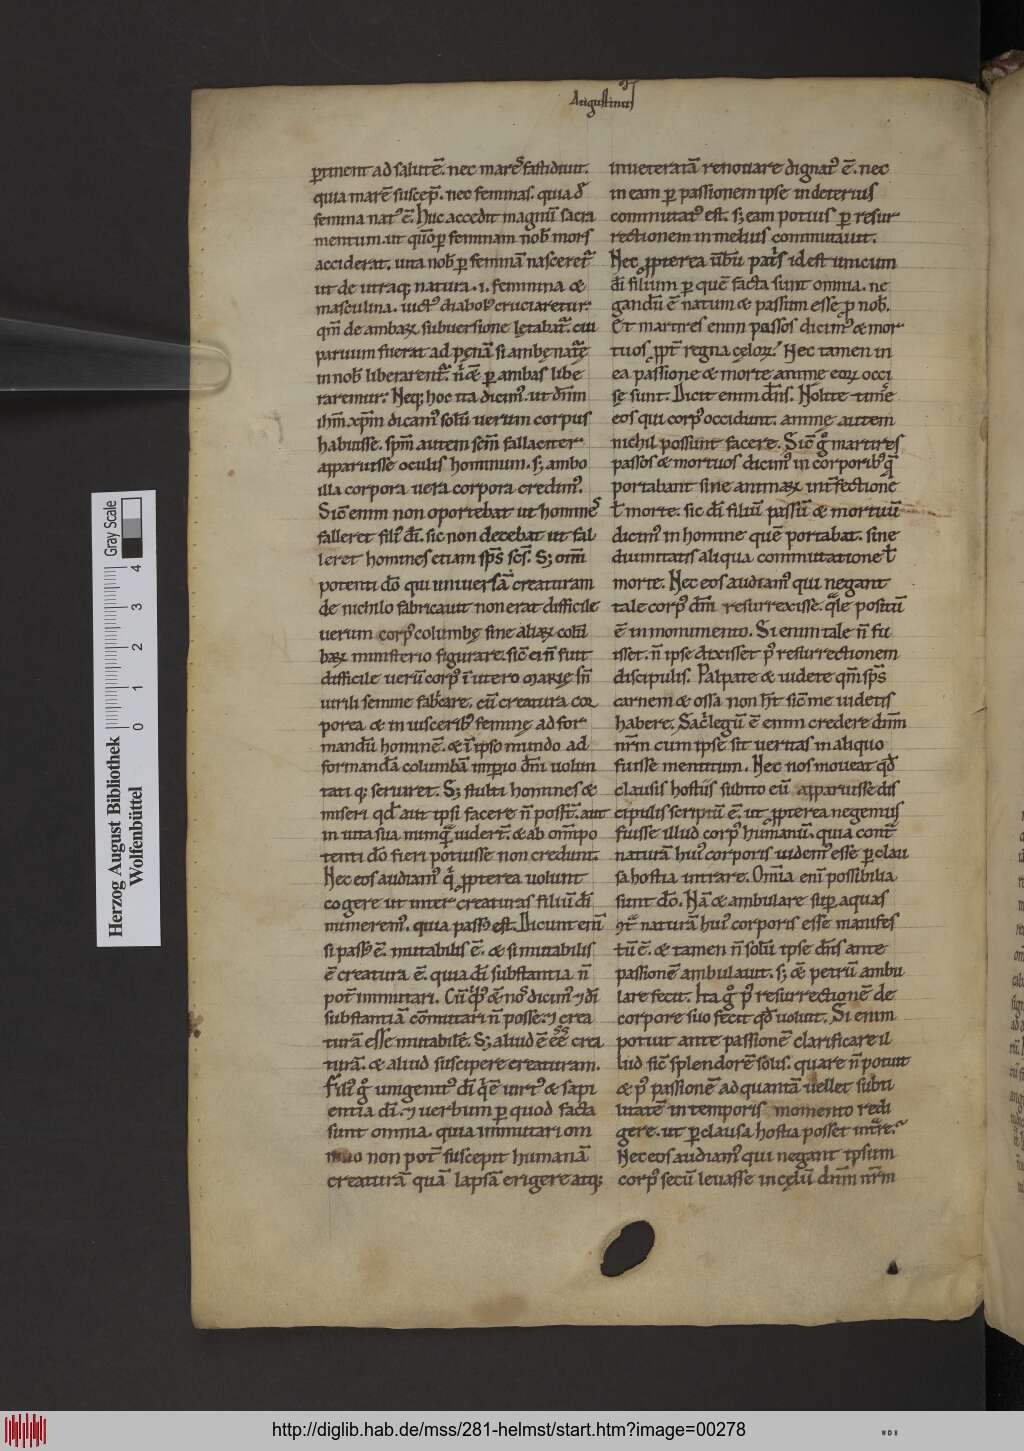 Augustinus
ptinent ad salutē. nec mares fastidiuit.
quia marē suscep̄. nec feminas. quia d̄
femina natꝰ ē. Huc accedit magnū sacra
mentum. ut quō ꝑ feminam nob̄ mors
acciderat. uita nob̄ ꝑ feminā nasceret᷑
ut de utraq; natura .i. feminina &
masculina. uictꝰ diabolꝰ cruciaretur.
qm̄ de ambaꝝ subuersione lętabat᷑. cui
paruum fuerat ad pęnā si ambę natę
in nob̄ liberarent᷑. n̄ & ꝑ ambas libe
raremur. Neq; hoc ita dicimꝰ. ut dn̄m
ihm̄ xpm̄ dicamꝰ solū uerum corpus
habuisse. spm̄ autem sc̄m fallaciter
apparuisse oculis hominum. s; ambo
illa corpora uera corpora credimꝰ.
Sic̄ enim non oportebat ut homines
falleret filiꝰ dī. sic non decebat ut fal
leret homines etiam sps̄ scs̄. S; om̄i
potenti dō qui uniuersā creaturam
de nichilo fabricauit non erat difficile
uerum corpꝰ columbę sine aliaꝝ colū
baꝝ ministerio figurare. sic̄ ei n̄ fuit
difficile uerū corpꝰ ī utero MARIE sn̄
uirili semine fabͥcare. cū creatura cor
porea & in uisceribꝰ feminę ad for
mandū hominē. & ī ipso mundo ad
formandā columbā imperio dn̄i uolun
tati q; seruiret. S; stulti homines &
miseri qd̄ aut ipsi facere n̄ posst̄. aut
in uita sua nunquā uidert̄. & ab om̄ipo
tenti dō fieri potuisse non credunt.
Nec eos audiamꝰ qͥ ꝓpterea uolunt
cogere ut inter creaturas filiū dī
numeremꝰ. quia passꝰ est. Dicunt enī
si passꝰ ē. mutabilis ē. & si mutabilis
ē creatura ē. quia dī substantia n̄
pot̄ immutari. Cū qͥbꝰ & nos dicimꝰ ⁊ dī
substantiā cōmutari n̄ posse. ⁊ crea
turā esse mutabilē. S; aliud ē eē crea
turā. & aliud suscipere creaturam.
Filiꝰ gͦ unigenitꝰ dī qͥ ē uirtꝰ & sapi
entia dī. ⁊ uerbum ꝑ quod facta
sunt omnia. quia immutari om
nino non pot̄ suscepit humanā
creaturā quā lapsā erigere atq;
inueteratā renouare dignatꝰ ē. nec
in eam ꝑ passionem ipse in deterius
commutatꝰ est. s; eam potius ꝑ resur
rectionem in melius commutauit.
Nec ꝓpterea ūbū patͥs id est unicum
dī filium ꝑ quē facta sunt omnia. ne
gandū ē natum & passum esse ꝓ nob̄.
Et martires enim passos dicimꝰ & mor
tuos ꝓpt̄ regna cęloꝝ. Nec tamen in
ea passione & morte animę eoꝝ occi
sę sunt. Dicit enim dn̄s. Nolite timere
eos qui corpꝰ occidunt. animę autem
nichil possunt facere. Sic̄ gͦ martires
passos & mortuos dicimꝰ in corporibꝰ quę
portabant sine animaꝝ int̄fectionē
ł morte. sic dī filiū passū & mortuū
dicimꝰ in homine quē portabat. sine
diuinitatis aliqua commutatione ł
morte. Nec eos audiamꝰ qui negant
tale corpꝰ dn̄i resurrexisse. qͣle positū
ē in monumento. Si enim tale n̄ fu
isset. n̄ ipse dixisset pꝰ resurrectionem
discipulis. Palpate & uidete qm̄ sps̄
carnem & ossa non ht̄ sic̄ me uidetis
habere. Sacͥlegū ē enim credere dn̄m
nr̄m cum ipse sit ueritas in aliquo
fuisse mentitum. Nec nos moueat qd̄
clausis hostiis subito eū apparuisse dis
cipulis scriptū ē. ut ꝓpterea negemus
fuisse illud corpꝰ humanū. quia cont̄
naturā huiꝰ corporis uidemꝰ esse ꝑ clau
sa hostia intrare. Omīa enī possibilia
sunt dō. Nā & ambulare suꝑ aquas
ꝯtͣ naturā huiꝰ corporis esse manifes
tū ē. & tamen n̄ solū ipse dn̄s ante
passionē ambulauit. s; & petrū ambu
lare fecit. Ita gͦ pꝰ resurrectionē de
corpore suo fecit qd̄ uoluit. Si enim
potuit ante passionē clarificare il
lud sic̄ splendorē solis. quare n̄ potuit
& pꝰ passionē ad quantā uellet subti
litatē in temporis momento redi
gere. ut ꝑ clausa hostia posset intͣre.
Nec eos audiamꝰ qui negant ipsum
corpꝰ secū leuasse in cęlū dn̄m nr̄m
Herzog August Bibliothek
Wolfenbüttel
0 1 2 3 4
Gray Scale
http://diglib.hab.de/mss/281-helmst/start.htm?image=00278